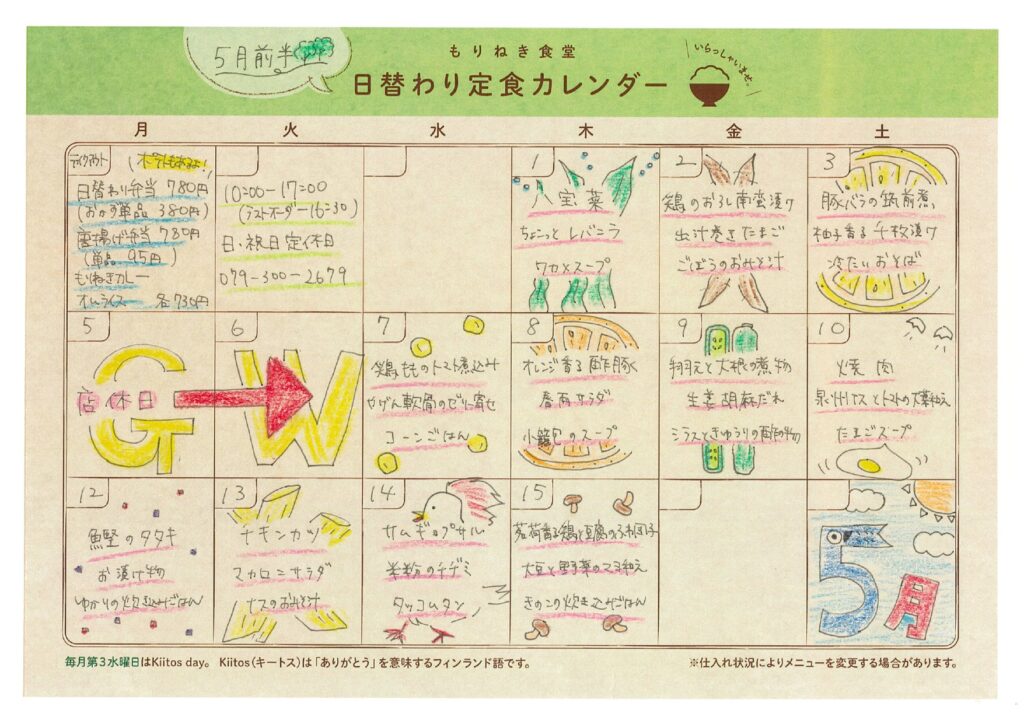 5月前半
もりねき食堂
日替わり定食カレンダー
いらっしゃいませ。
月 火 水 木 金 土
テイクアウト
(ポテトもあるよ!)
日替わり弁当 780円
(おかず単品 380円)
唐揚げ弁当 780円
(単品 95円)
もりねきカレー
オムライス 各730円
10:00-17:00
(ラストオーダー16:30)
日・祝日定休日
079-300-2679
1
八宝菜
ちょこっとレバニラ
ワカメスープ
2
鶏のおろし南蛮漬け
出汁巻きたまご
ごぼうのおみそ汁
3
豚バラの筑前煮
柚子香る千枚漬け
冷たいおそば
5
G
店休日
6
W
7
鶏ももトマト煮込み
やげん軟骨のゼリー寄せ
コーンごはん
8
オレンジ香る酢豚
春雨サラダ
小籠包のスープ
9
手羽元と大根の煮物
生姜胡麻だれ
シラスときゅうりの酢の物
10
焼肉
泉州ナスとトマトの大葉和え
たまごスープ
12
鰹のタタキ
お漬け物
ゆかりの炊き込みごはん
13
チキンカツ
マカロニサラダ
ナスのおみそ汁
14
サムギョプサル
米粉のチヂミ
タッコムタン
15
茗荷香る鶏と豆腐のふわ団子
大豆と野菜のマヨ和え
きのこの炊き込みごはん
5月
毎月第3水曜日はKiitos day。 Kiitos(キートス)は「ありがとう」を意味するフィンランド語です。
※仕入れ状況によりメニューを変更する場合があります。